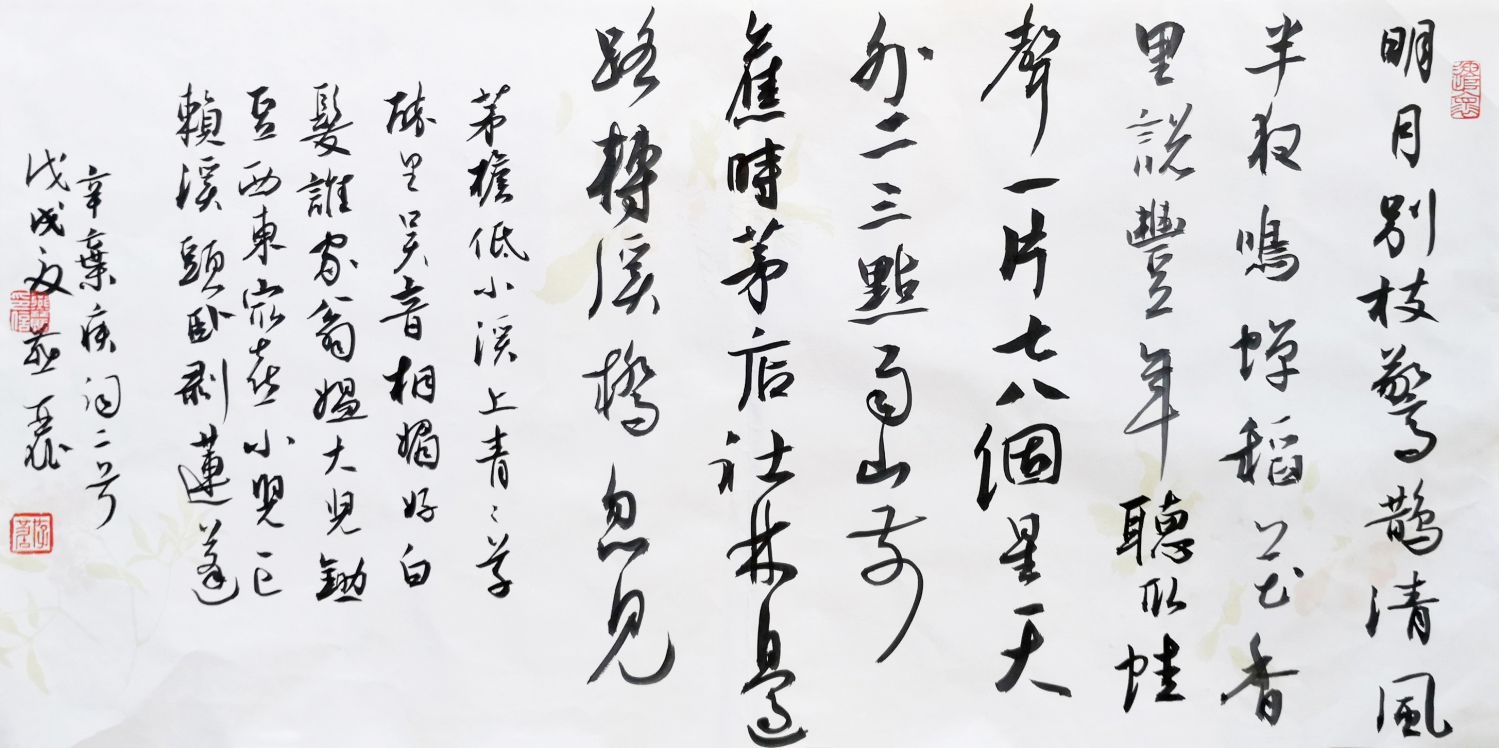 明月别枝驚鹊清風
半夜鳴蝉稻花香
里説豐年聽取蛙
聲一片七八個星天
外二三點雨山前
舊時茅店社林邊
路轉溪橋忽見
茅檐低小溪上青〻草
醉里吴音相媚好白
髮誰家翁媪大兒鋤
豆西東最喜小兒亡
賴溪頭卧剥蓮蓬
辛棄疾词二首
戊戌夏